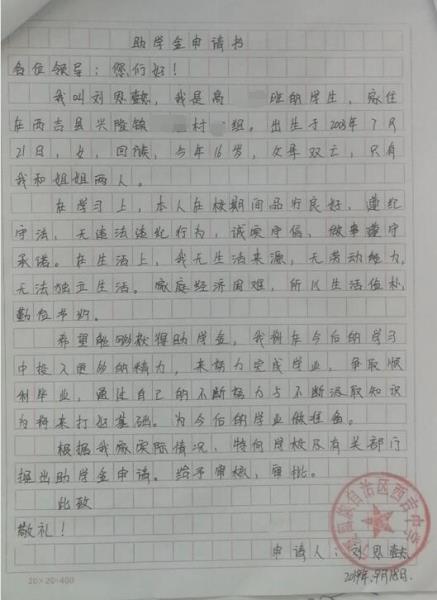 助学金申请书
各位领导:您们好!
我叫刘恩懿,我是高 班的学生,家住
在西吉县兴隆镇 村 组。出生于2003年7月
21日,女,回族,今年16岁,父母双亡,只有
我和姐姐两人。
在学习上,本人在校期间品行良好,遵纪
守法,无违法违纪行为,诚实守信,做事遵守
承诺。在生活上,我无生活来源,无劳动能力,
无法独立生活。家庭经济困难,所以生活俭朴,
勤俭节约。
希望能够获得助学金,我将在今后的学习
中投入更多的精力,来努力完成学业,争取顺
利毕业,通过自己的不断努力与不断汲取知识
为将来打好基础。为今后的学业做准备。
根据我家实际情况,特向学校及有关部门
提出助学金申请。给予审核,审批。
此致
敬礼!
申请人:刘恩懿
2019年9月18日.
族自治区西吉中学
20×20=400